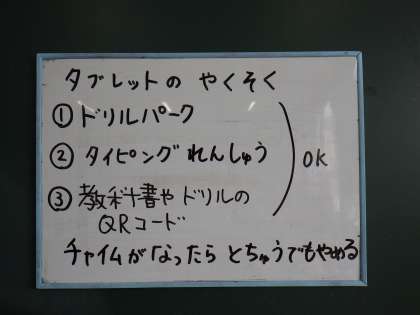 タブレットの やくそく
① ドリルパーク
② タイピングれんしゅう
OK
③ 教科書や ドリルの
QRコード
チャイムが なったら とちゅうでもやめる